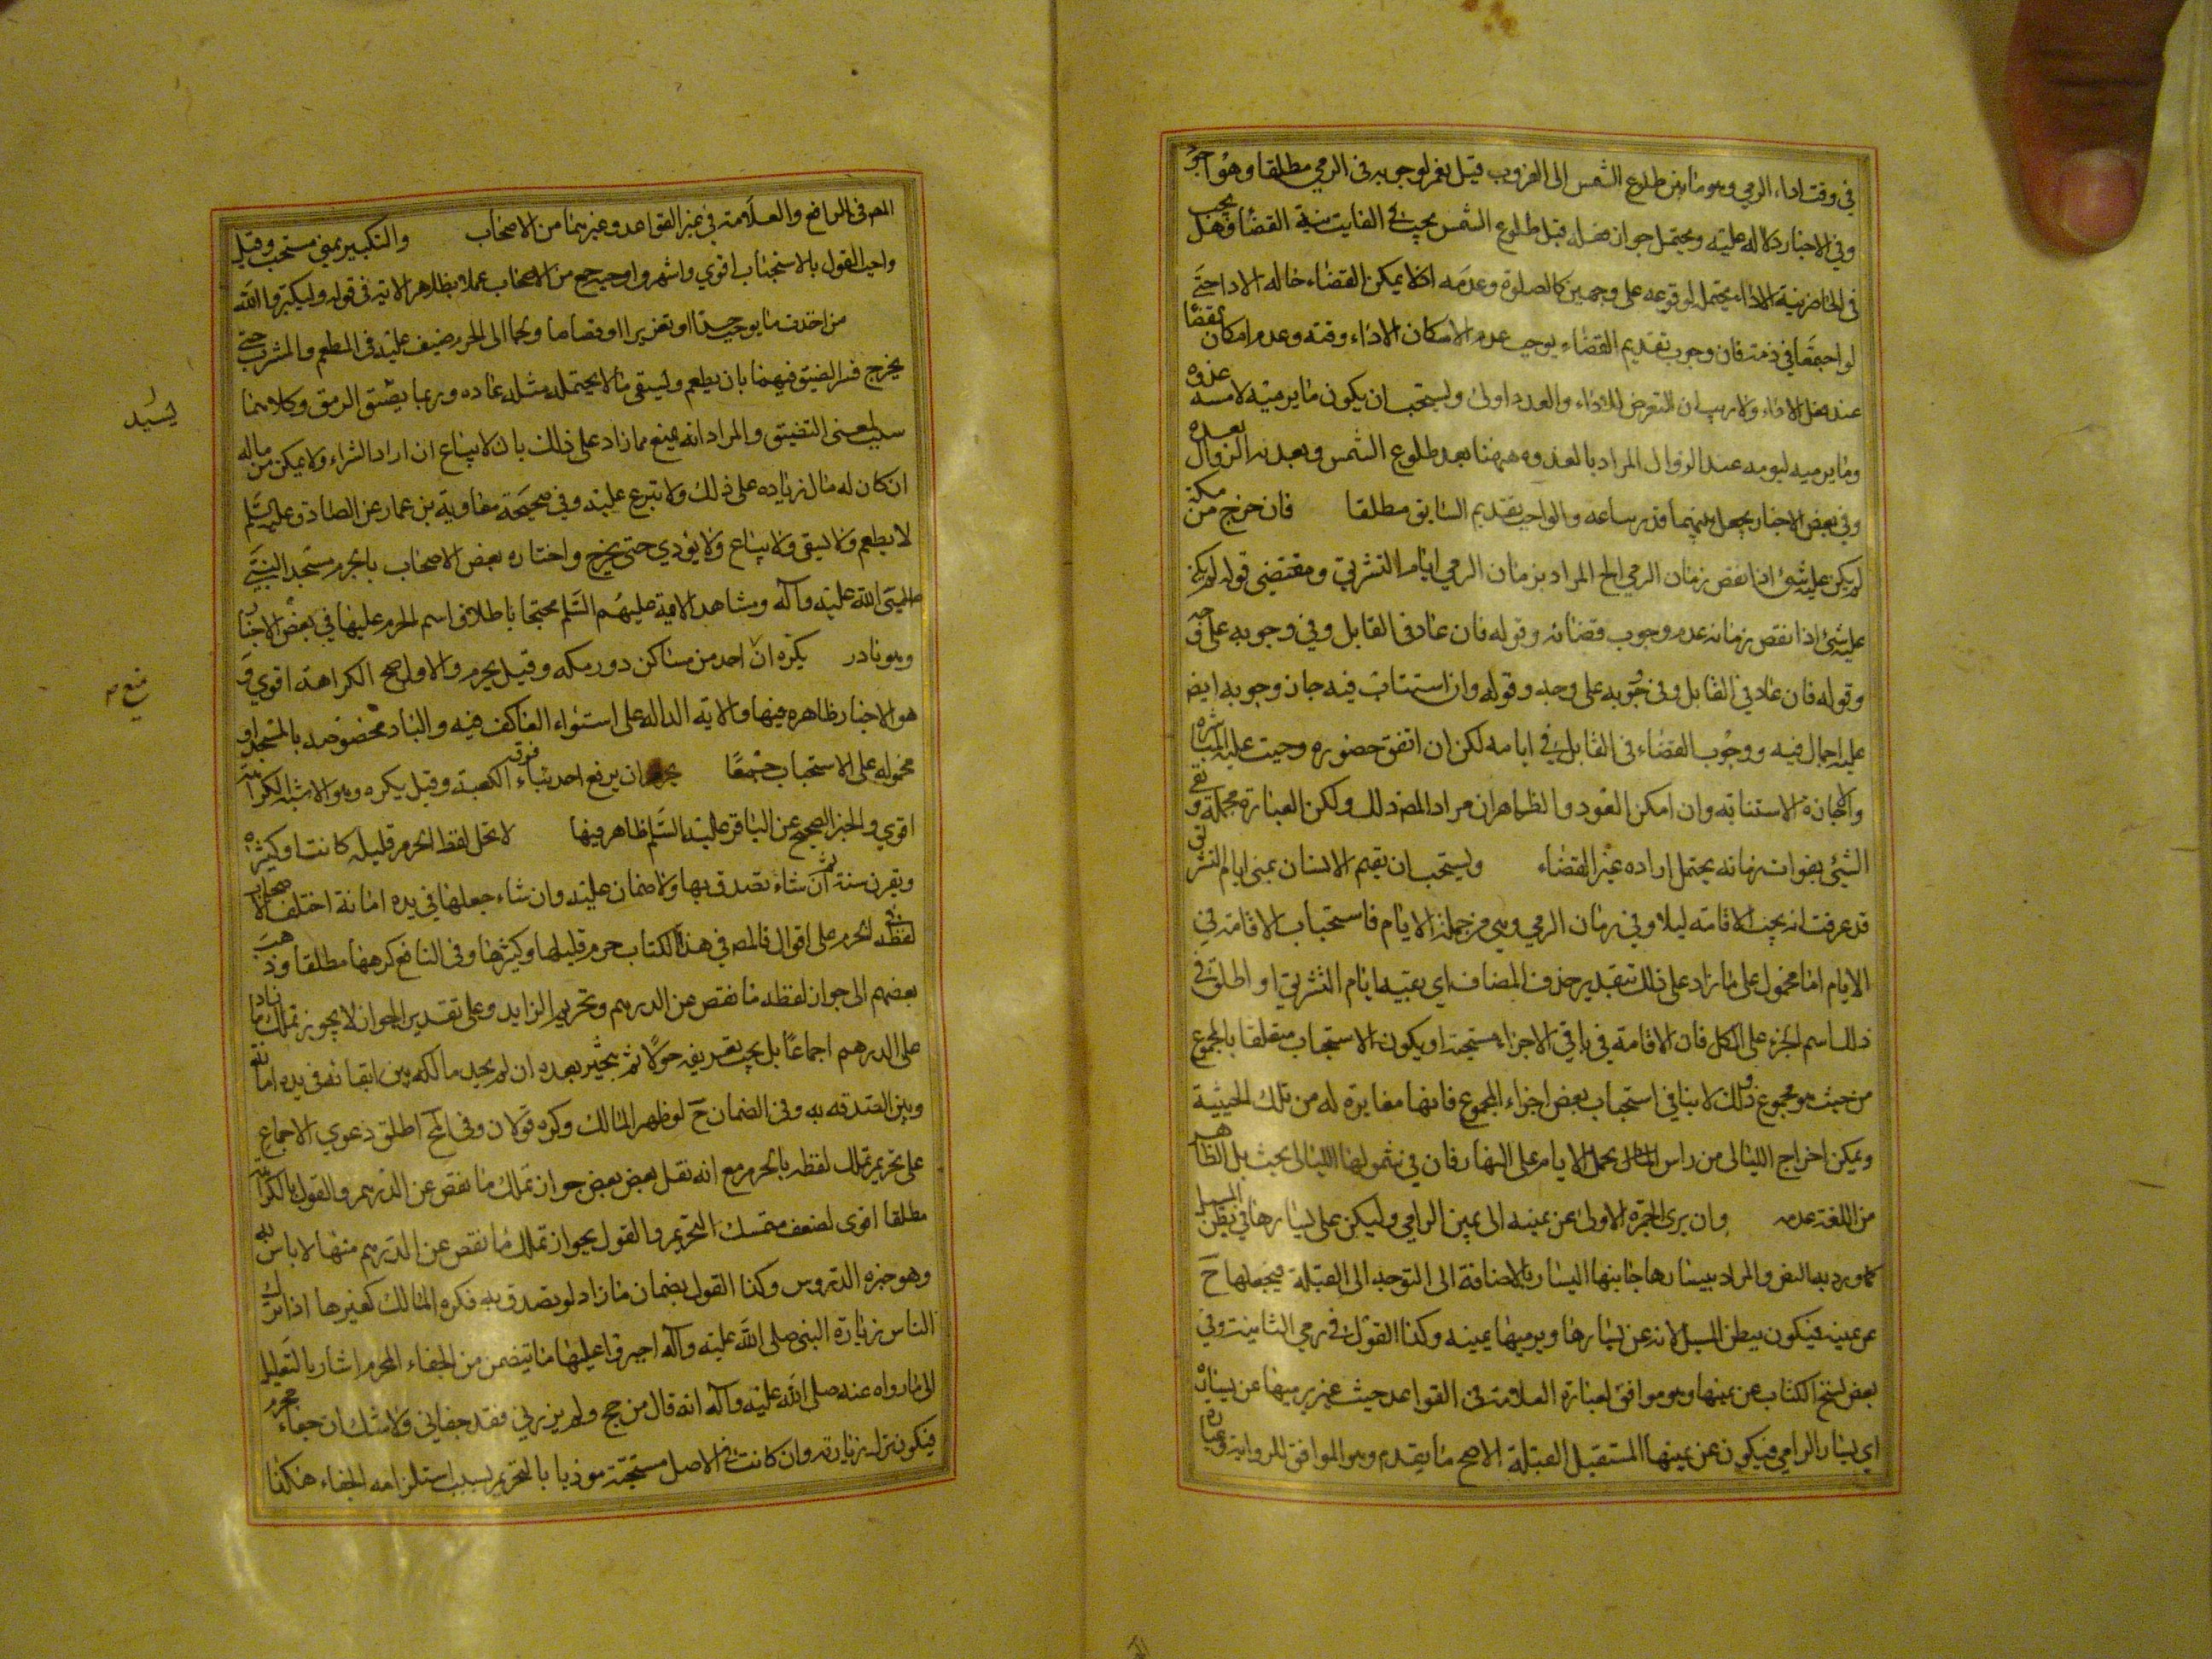 في وقت اداء الرمي وهو ما بين طلوع الشمس الى الغروب قيل نعم لوجوبه في الرمي مطلقا وهو اجو
وفي الاخبار دلالة عليه ويحتمل جواز فعله قبل طلوع الشمس يجب في الفايت نية القضاء وهل يجب
في الحاضر نية الاداء يحتمل لوقوعه على وجهين كالصلوة وعدمه اذ لا يمكن القضاء حالة الاداء حتى
لو اجتمعا في ذمته فان وجوب تقديم القضاء يوجب عدم الامكان الاداء وقته وعدم امكان القضا
عند فعل الاداء ولا ريب ان التعرض للاداء والعدد اولى ويستحب ان يكون ما يرميه لامسه غدوه
وما يرميه ليومه عند الزوال المراد بالغدوه ههنا بعد طلوع الشمس وبعد الزوال بعده
وفي بعض الاخبار يجعل بينهما قدر ساعه والواجب تقديم السابق مطلقا فان خرج من مكة
لم يكن عليه شئ اذا نقص زمان الرمي الخ المراد بزمان الرمي ايام التشريق ومقتضى قوله لم يكن
عليه شئ اذا نقص زمانه عدم وجوب قضائه وقوله فان عاد في القابل وفي وجوبه على وجه
وقوله فان عاد في القابل وفي وجوبه على وجه وقوله وان استناب فيه جاز وجوبه ايض
عليه اجمال فيه ووجوب القضاء في القابل في ايامه لكن ان اتفق حضوره وجبت عليه المباشره
والا جازة الاستنابه وان امكن العود والظاهر ان مراد المص ذلك ولكن العبارة مجملة و
الشئ بفوات زمانه يحتمل اراده غير القضاء ويستحب ان يقيم الانسان بمنى ايام التشر
قد عرفت انه يجب الاقامه ليلا وفي زمان الرمي وهي من جملة الايام فاستحباب الاقامة في
الايام اما محمول على ما زاد على ذلك بتقدير حذف المضاف اي بقيه ايام التشريق او اطلق في
ذلك اسم الجزء على الكل فان الاقامة في باقي الاجزاء مستحبة او يكون الاستحباب متعلقا بالمجموع
من حيث هو مجموع وذلك لا ينافي استحباب بعض اجزاء المجموع فانها مغايرة له من تلك الحيثية
ويمكن اخراج الليالى من راس بحمل الايام على النهار فان في شمولها الليالى بحث بل الظاهر
من اللغة عدمه وان يرمى الجمرة الاولى عن يمينه الى يمين الرامي وليكن على يسارها في بطن المسيل
كما ورد به النص والمراد بيسارها جانبها اليسار بالاضافة الى التوجه الى القبلة فيجعلها ح
عن يمينه فيكون ببطن المسيل لانه عن يسارها ويرميها بيمينه وكذا القول في رمي الثانية وفي
بعض نسخ الكتاب عن يمينها وهو موافق لعبارة العلامة في القواعد حيث عبر يرميها عن يساره
اي يسار الرامي فيكون عن يمينها المستقبل القبلة الاصح ما يقدم وهو الموافق للرواية وعباره
المص في الرافع والعلامة في غير القواعد وغيرهما من الاصحاب والتكبير بمنى مستحب وقيل
واجب القول بالاستحباب اقوي واشهر واوجبه جمع من الاصحاب عملا بظاهر الاية في قوله وليكبروا الله
من احدث ما يوجب حدا او تعزيرا او قصاصا ولجا الى الحرم ضيف عليه في المطعم والمشرب حتى
يخرج فسر الضيق فيهما بان يطعم ويسقى ما لا يحتمله مثله عاده وربما يضيق الرمق وكلاهما
يسد
سلب لمعنى التضييق والمراد انه يمنع مما زاد على ذلك بان لا يباع ان اراد الشراء ولا يمكن من ماله
ان كان له مال زياده على ذلك ولا تبرع عليه وفي صحيحة معاوية بن عمار عن الصادق عليه السلم
لا يطعم ولا يسقى ولا يباع ولا يؤدي حتى يخرج واختاره بعض الاصحاب بالحرم مسجد النبي
صلى الله عليه وآله ومشاهد الامة عليهم السلم محتجا باطلاق اسم الحرم عليها في بعض الاخبار
وهو نادر يكره ان احد من مساكن دور مكه وقيل يحرم والاول اصح الكراهة اقوي و
منع م
هو الاخبار ظاهره فيها والاية الداله على استواء العاكف فيه والباد مخصوصه بالمسجد او
محموله على الاستحباب جمعا ان يرفع احد بناء فوق الكعبة وقيل يكره وهو الاشبه الكراهة
اقوي والخبر الصحيح عن الباقر عليه السلم ظاهر فيها لا تحل لقطة الحرم قليله كانت او كثيره
ويعرف سنة ثم ان شاء تصدق بها ولا ضمان عليه وان شاء جعلها في يده امانة اختلف الاصحاب
لقطه الحرم على اقوال فالمص في هذا الكتاب حرم قليلها وكثيرها وفي النافع كرهها مطلقا وذهب
بعضهم الى جواز لقطه ما نقص عن الدرهم وتحريم الزايد وعلى تقدير الجواز لا يجوز تملك ما زاد
على الدرهم اجماعا بل يجب تعريفه حولا ثم يتخير بعده ان لم يجد مالكه بين ابقائه في يده امانة
وبين الصدقه به وفي الضمان ح لو ظهر المالك وكره قولان وفي الخ اطلق دعوي الاجماع
على تحريم تملك لقطه بالحرم مع انه نقل بعض بعض جواز تملك ما نقص عن الدرهم والقول بالكراهة
مطلقا اقوى لضعف متمسك التحريم والقول بجواز تملك ما نقص عن الدرهم منها لا باس به
وهو خيره الدروس وكذا القول بضمان ما زاد لو تصدق به فكره المالك كغيرها اذا ترك
الناس زيارة النبي صلى الله عليه وآله اجبروا عليها لما تيضمن من الجفاء المحرم اشار بالتعليل
الى ما رواه عنه صلى الله عليه وآله انه قال من حج ولم يزرني فقد جفاني ولا شك ان جفاءه محرم
فيكون ترك زيارته وان كانت في الاصل مستحبة موذيا بالتحريم بسبب استلزامه الجفاء هكذا